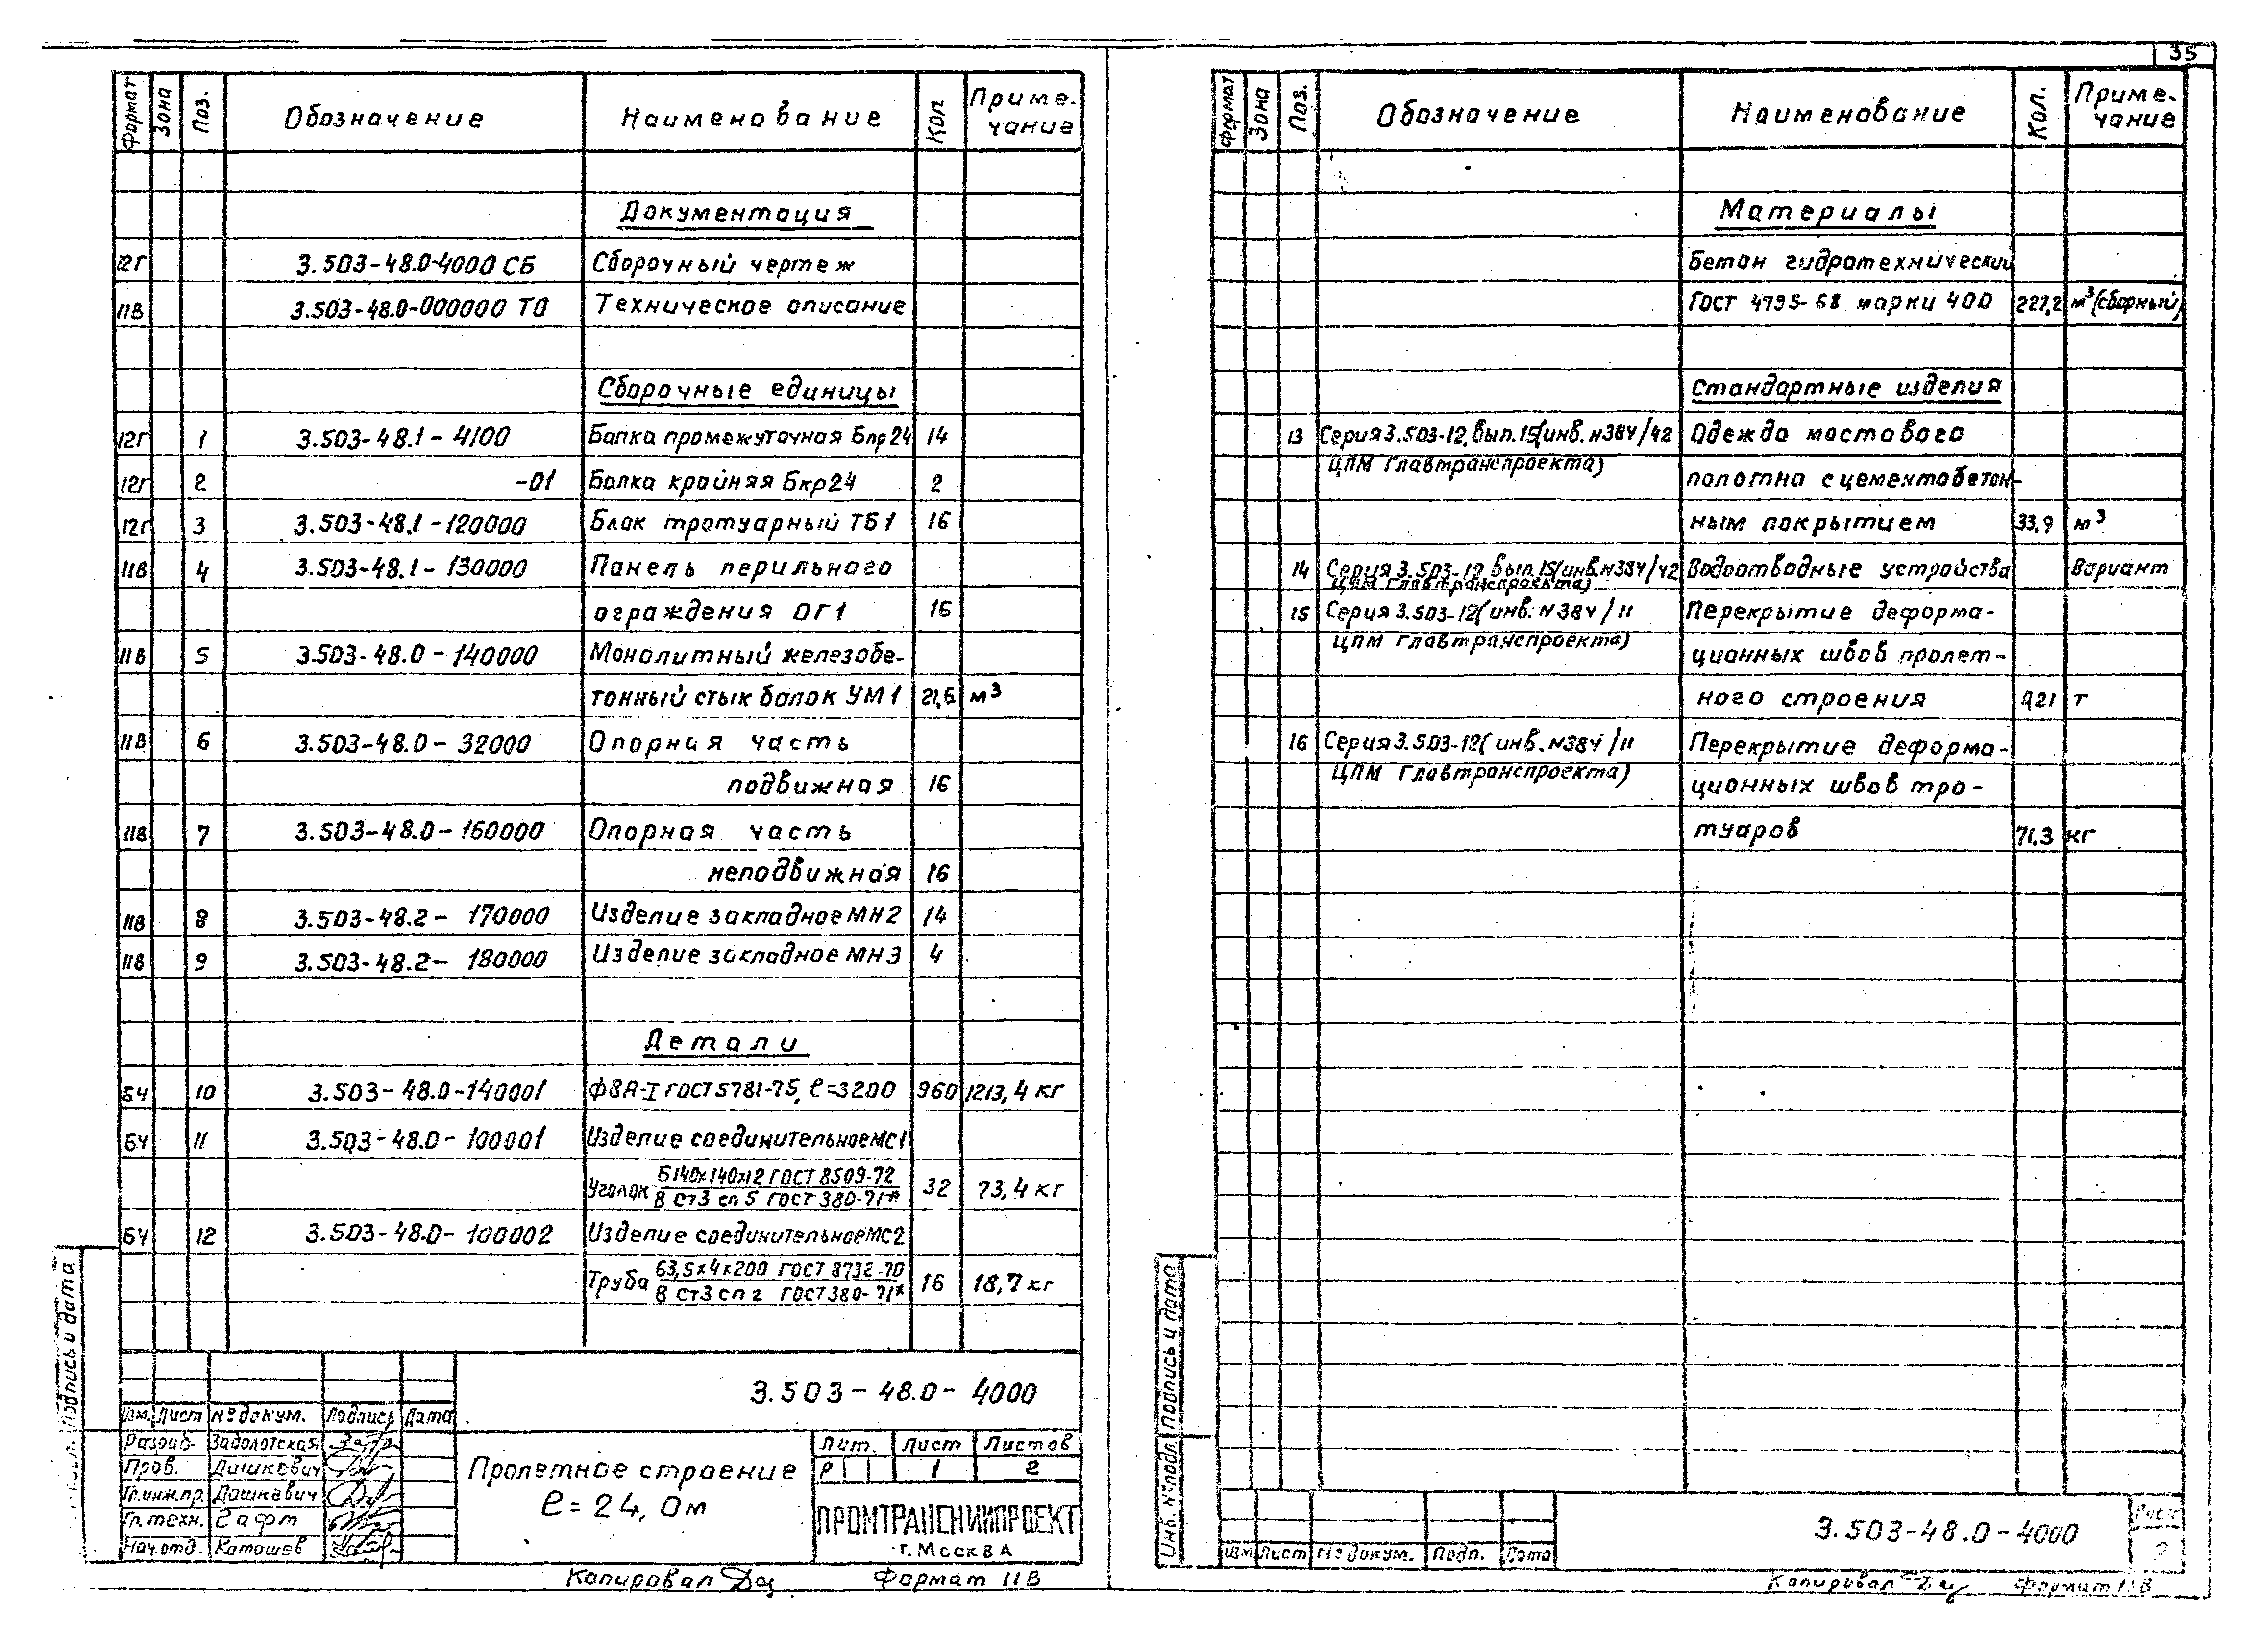 35
Формат Зона Поз. Обозначение Наименование Кол Приме-
чание
Документация
12Г 3.503-48.0-4000 СБ Сборочный чертеж
11В 3.503-48.0-000000 ТО Техническое описание
Сборочные единицы
12Г 1 3.503-48.1-4100 Балка промежуточная Бпр24 14
12Г 2 -01 Балка крайняя Бкр24 2
12Г 3 3.503-48.1-120000 Блок тротуарный ТБ1 16
11В 4 3.503-48.1-130000 Панель перильного
ограждения ОГ1 16
11В 5 3.503-48.0-140000 Монолитный железобе-
тонный стык балок УМ1 21,6 м³
11В 6 3.503-48.0-32000 Опорная часть
подвижная 16
11В 7 3.503-48.0-160000 Опорная часть
неподвижная 16
11В 8 3.503-48.2-170000 Изделие закладное МН2 14
11В 9 3.503-48.2-180000 Изделие закладное МН3 4
Детали
БЧ 10 3.503-48.0-140001 ф8А-I ГОСТ 5781-75, ℓ=3200 960 1213,4 кг
БЧ 11 3.503-48.0-100001 Изделие соединительное МС1
Уголок Б140х140х12 ГОСТ 8509-72 32 73,4 кг
В Ст3 сп 5 ГОСТ 380-71*
БЧ 12 3.503-48.0-100002 Изделие соединительное МС2
Труба 63,5х4х200 ГОСТ 8732-70 16 18,7 кг
В Ст3 сп 2 ГОСТ 380-71*
Подпись и дата
3.503-48.0-4000
Изм. Лист № докум. Подпись Дата
Разраб. Заболотская
Пров. Дашкевич
Гл.инж.пр. Дашкевич
Гл.техн. Гафт
Нач.отд. Каташев
Пролетное строение
ℓ=24,0м
Лит. Лист Листов
Р 1 2
ПРОМТРАНСНИИПРОЕКТ
г. Москва
Копировал Формат 11В
Формат Зона Поз. Обозначение Наименование Кол. Приме-
чание
Материалы
Бетон гидротехнический
ГОСТ 4795-68 марки 400 227,2 м³(сборный)
Стандартные изделия
13 Серия 3.503-12, вып.15(инв.№384/42 Одежда мостового
ЦПМ Главтранспроекта)
полотна с цементобетон-
ным покрытием 33,9 м³
14 Серия 3.503-12 вып.15(инв.№384/42 Водоотводные устройства Вариант
ЦПМ Главтранспроекта)
15 Серия 3.503-12(инв.№384/11 Перекрытие деформа-
ЦПМ Главтранспроекта)
ционных швов пролет-
ного строения 0,21 т
16 Серия 3.503-12(инв.№384/11 Перекрытие деформа-
ЦПМ Главтранспроекта)
ционных швов тро-
туаров 71.3 кг
Инв. № подл. Подпись и дата
Изм Лист № докум. Подп. Дата
3.503-48.0-4000
Лист
2
Копировал Формат 11В